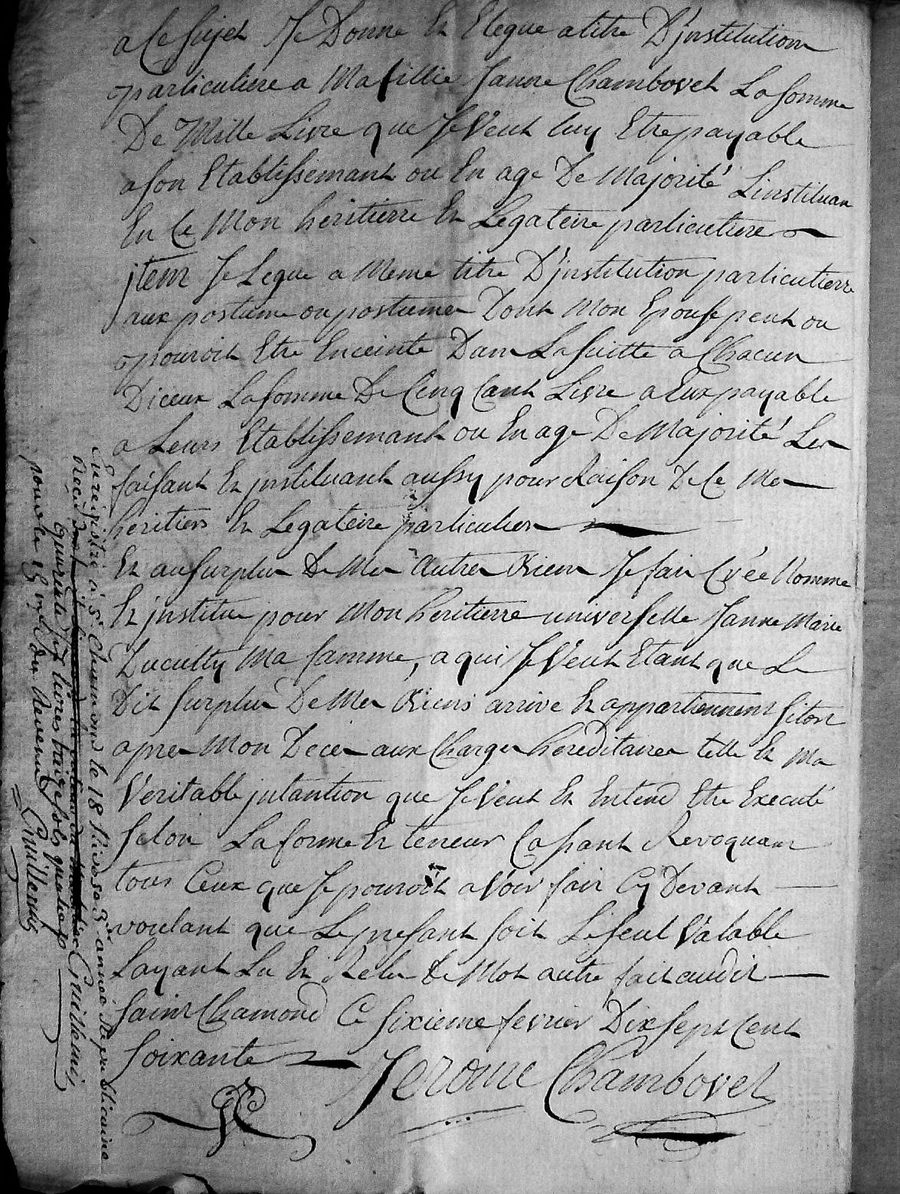 a ce sujet Je Donne Et Legue a titre D'jnstitution
particuliere a Ma fillie Janne Chambovet La somme
De Mille Livre que Je Veut luy Etre payable
a son Etablissemant ou En age De Majorité Linstituan
En ce Mon heritierre Et Legateire particulierre
jtem Je Legue a Meme titre D'jnstitution particulierre
aux postume ou postumes Dont Mon Epouse peut ou
pouroit Etre Enceinte Dans La suitte a Chacun
Diceux La somme De Cinq Cant Livre a Eux payable
a Leurs Etablissemant ou En age De Majorité Les
faisant Et jnstituant aussy pour Raison De Ce Mes
heritiers Et Legateire particuliers
Et au surplus De Mes autres Biens Je fais Créé Nomme
Et jnstitue pour Mon heritierre universelle Janne Marie
Ducully Ma famme, a qui Je Veut Etant que Le
Dit surplus De Mes Biens arrive Et appartiennent sitost
apres Mon Deces aux Charges hereditaires telle Et Ma
Veritable jntantion que Je Veut Et Entend Etre Executé
selon La forme Et teneur Cassant Revoquant
tous Ceux que Je pouroit avoir fait Cy Devant
voulant que Le presant soit Le seul Valable
Layant Lu Et Relu De Mot autre fait audit
Saint Chamond Ce sixieme fevrier Dix sept cent
soixante
Jerome Chambovet
Enregistré a St Chamond le 18 Nivose 3e année Republicaine
Reçu
quarante sept livres
pour le du Revenu
Guillemin